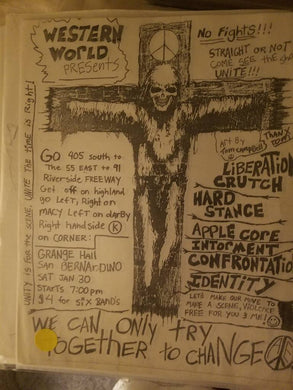 WESTERN
WORLD
PRESENTS
No FigHTS!!!
STRAIGHT OR NOT
COME SEE THE
UNITE!!!
Art By
Tom Campbell
THANX
UNITY iS for the SCENE UNITE THE TIME is Right!
GO 405 south to
THE 55 EAST to 91
Riverside FREEWAY
Get off on highland
go Left, Right on
MACY Left on darby
Right hand Side K
on CORNER:
GRANGE Hall
SAN BERNARDINO
SAT JAN 30
STARTS 7:00 pm
$4 for Six BANDS
LIBERATION
CRUTCH
HARD
STANCE
APPLE CORE
INTORMENT
CONFRONTATION
IDENTITY
LETS MAKE OUR MOVE TO
MAKE A SCENE, VIOLENCE
FREE FOR YOU & ME!
WE CAN ONLY TRY
TOGETHER to CHANGE